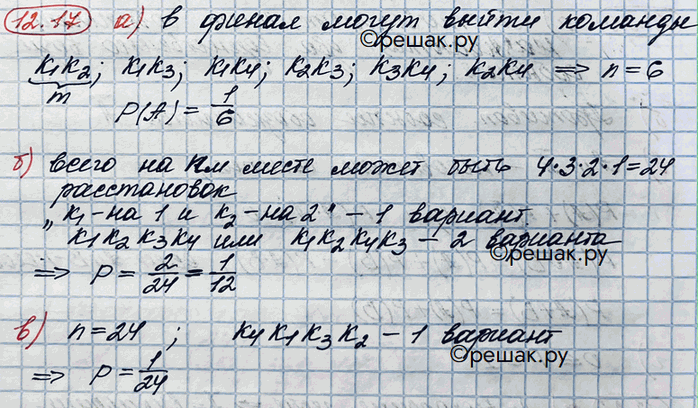 12.17 а) в финал могут выйти команды
©решак.ру
K1K2; K1K3; K1K4; K2K3; K3K4; K2K4 ⇒ n = 6
m
P(A) = 1/6
б) всего на км месте может быть 4·3·2·1=24
расстановок
„K1-на 1 и K2-на 2" - 1 вариант
K1K2K3K4 или K1K2K4K3 - 2 варианта
©решак.ру
⇒ P = 2/24 = 1/12
в) n = 24 ; K4K1K3K2 - 1 вариант
©решак.ру
⇒ P = 1/24